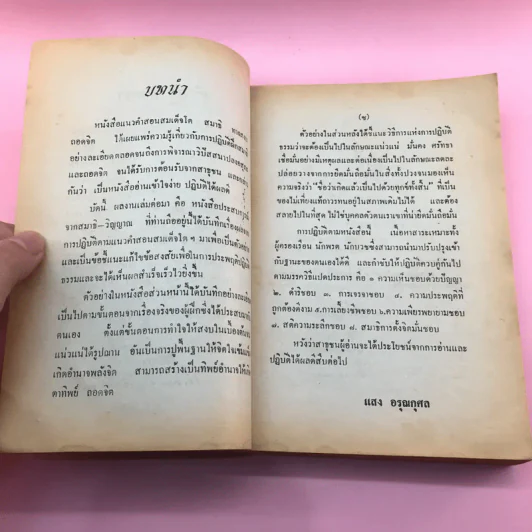 บทนำ
หนังสือแนวคำสอนสมเด็จโต สมาธิ
ถอดจิต ได้เผยแพร่ความรู้เกี่ยวกับการปฏิบัติฝึกสมาธิ
อย่างละเอียดตลอดจนถึงการพิจารณาวิปัสสนา
และถอดจิต จนได้รับการต้อนรับจากสาธุชน
กันว่า เป็นหนังสืออ่านเข้าใจง่าย ปฏิบัติได้ผลดี
บัดนี้ ผลงานเล่มต่อมา คือ หนังสือประสบการณ์
จากสมาธิ–วิญญาณ ที่ท่านถืออยู่นี้ได้บันทึกเรื่อง
การปฏิบัติตามแนวคำสอนสมเด็จโต ๆ มาเพื่อเป็น
และเป็นข้อชี้แนะแก้ไขข้อสงสัยเพื่อในการประพฤติปฏิบัติ
ธรรมและจะได้เห็นผลสำเร็จเร็วไวยิ่งขึ้น
ตัวอย่างในหนังสือส่วนหน้านี้ได้บันทึกอย่างละเอียด
เป็นไปตามขั้นตอนจากเรื่องจริงของผู้ฝึกซึ่งได้ประสบ
ตนเอง ตั้งแต่ขั้นตอนการทำใจให้สงบในเบื้องต้น
แน่วแน่ได้รูปฌาน อันเป็นการปูพื้นฐานให้จิตใจเข้มแข็ง
เกิดอำนาจพลังจิต สามารถสร้างเป็นทิพย์อำนาจให้
ตาทิพย์ ถอดจิต
(๒)
ตัวอย่างในส่วนหลังได้ชี้แนะวิธีการแห่งการปฏิบัติ
ธรรมว่าจะต้องเป็นไปในลักษณะแน่วแน่ มั่นคง ศรัทธา
เชื่อมั่นอย่างมีเหตุผลและต้องเป็นไปในลักษณะลดละ
ปล่อยวางจากการยึดมั่นถือมั่นในสิ่งทั้งปวงจนมองเห็น
ความจริงว่า “ชื่อว่าเกิดแล้วเป็นไปด้วยทุกข์ทั้งสิ้น” ที่เป็น
ของไม่เที่ยงแท้ถาวรทนอยู่ในสภาพเดิมไม่ได้ และต้อง
สลายไปในที่สุด ไม่ใช่บุคคลตัวตนเราเขาที่น่ายึดมั่นถือมั่น
การปฏิบัติตามหนังสือนี้ เนื้อหาสาระเหมาะทั้ง
ผู้ครองเรือน นักพรต นักบวชซึ่งสามารถนำมาปรับปรุงเข้า
กับฐานะของตนเองได้ดี และกำชับให้ปฏิบัติควบคู่กันไป
ตามมรรควิธีแปดประการ คือ ๑ ความเห็นชอบด้วยปัญญา
๒. ดำริชอบ ๓. การเจรจาชอบ ๔. ความประพฤติที่
ถูกต้องดีงาม ๕.การเลี้ยงชีพชอบ ๖.ความเพียรพยายามชอบ
๗. สติความระลึกชอบ ๘. สมาธิการตั้งจิตมั่นชอบ
หวังว่าสาธุชนผู้อ่านจะได้ประโยชน์จากการอ่านและ
ปฏิบัติได้ผลดีสืบต่อไป
แสง อรุณกุศล